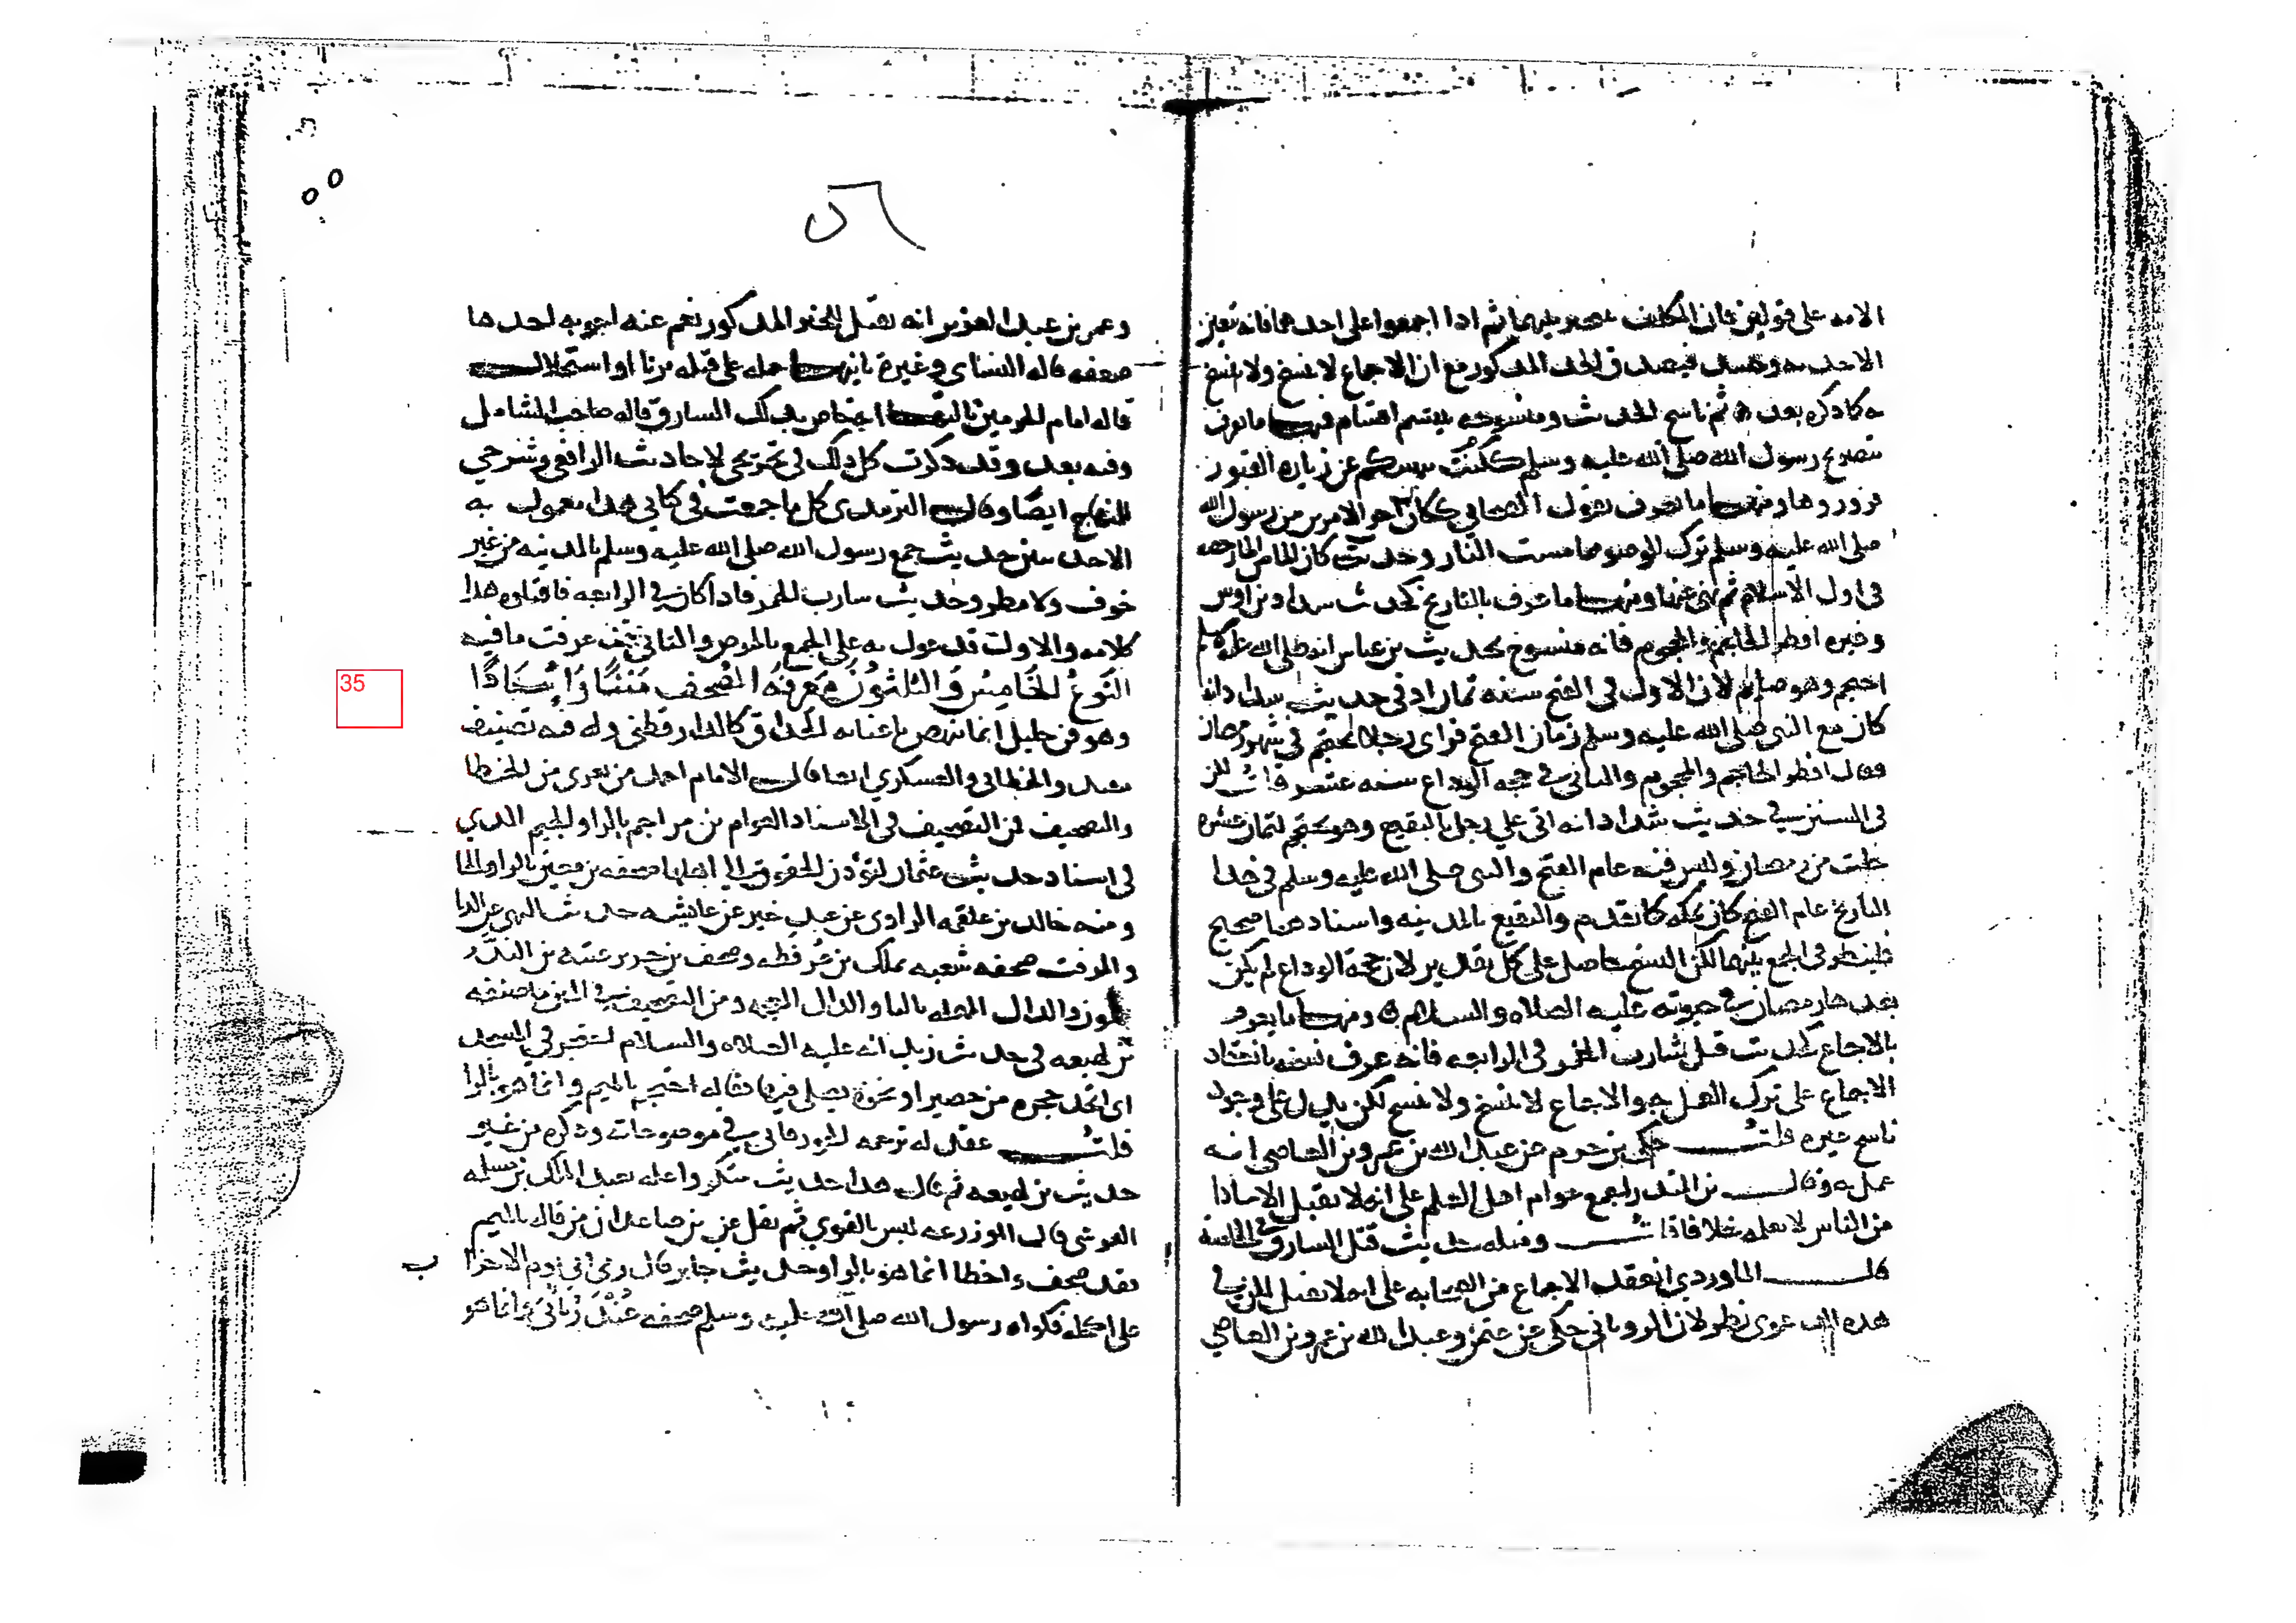 الامه على قولين فان المكلف مخير بينهما ثم اذا اجمعوا على احدهما فانه تعين
الاخذ به وحينئذ فيصدق الحد المذكور مع ان الاجماع لا ينسخ ولا ينسخ
به كما ذكره بعد ثم ناسخ الحديث ومنسوخه ينقسم اقسام فمنها ما يعرف
بتصريح رسول الله صلى الله عليه وسلم ككنت نهيتكم عن زياره القبور
فزوروها ومنها ما يعرف بقول الصحابي ككان اخر الامرين من رسول الله
صلى الله عليه وسلم ترك الوضوء مما مست النار وحديث كان الماء من الماء رخصه
في اول الاسلام ثم نهى عنها ومنها ما عرف بالتاريخ كحديث شداد بن اوس
وغيره افطر الحاجم والمحجوم فانه منسوخ بحديث بن عباس انه صلى الله عليه وسلم
احتجم وهو صايم لان الاول في الفتح سنه ثمان اذ في حديث شداد انه
كان مع النبي صلى الله عليه وسلم زمان الفتح فراى رجلا يحتجم في شهر رمضان
فقال افطر الحاجم والمحجوم والثاني في حجه الوداع سنه عشر قلت لكن
في السنن في حديث شداد انه اتى على رجل بالبقيع وهو يحتجم لثمان عشره
خلت من رمضان وليس فيه عام الفتح والنبي صلى الله عليه وسلم في هذا
التاريخ عام الفتح كان بمكه كما تقدم والبقيع بالمدينه واسناد هذا صحيح
فلينظر في الجمع بينهما لكن النسخ حاصل على كل تقدير لان حجة الوداع لم يكن
بعدها رمضان في حيوته عليه الصلاه والسلام ومنها ما يعرف
بالاجماع كحديث قتل شارب الخمر في الرابعه فانه عرف نسخه بانعقاد
الاجماع على ترك العمل به والاجماع لا ينسخ ولا ينسخ لكن يدل على وجود
ناسخ غيره قلت حكى بن حزم عن عبد الله بن عمرو بن العاصي انه
عمل به وقال بن المنذر اجمع عوام اهل العلم على انه لا يقتل الا شاذا
من الناس لا نعلمه خلافا قلت ومثله حديث قتل السارق في الخامسه
قال الماوردي انعقد الاجماع من الصحابه على انه لا يقتل لكن في
هذه الدعوى نظر لان الروياني حكى عن عثمن وعبد الله بن عمرو بن العاصي
٥٦
وعمر بن عبد العزيز انه يقتل للخبر المذكور نعم عنه اجوبه احدها
ضعفه قاله النساي وغيره ثانيها حمله على قتله بزنا او استحلال
قاله امام الحرمين ثالثها اختصاص بذلك السارق قاله صاحب الشامل
وفيه بعد وقد ذكرت كل ذلك في تخريجي لاحاديث الرافعي وشرحي
للمنهاج ايضا وقال الترمذي كل ما جمعت في كتابي هذا معمول به
الا حديثين حديث جمع رسول الله صلى الله عليه وسلم بالمدينه من غير
خوف ولا مطر وحديث شارب الخمر فاذا كان في الرابعه فاقتلوه هذا
كلامه والاول قد عول به على الجمع بالمرض والثاني قد عرفت ما فيه
النَوعُ الخَامِسُ وَالثلثوُنَ مَعرِفَه المُصَحف مَتنًا وَاِسنَادًا
وهو فن جليل انما ينهض باعبائه الحذاق كالدارقطني وله فيه تصنيف
مفيد والخطابي والعسكري ايضا قال الامام احمد من يعرى من الخطا
والتصحيف فمن التصحيف في الاسناد العوام بن مراجم بالراء والجيم الذي
في اسناد حديث عثمان لتؤدن الحقوق الى اهلها صحفه بن معين بالزاء والحا
ومنه خالد بن علقمه الراوي عن عبد خير عن عايشه حديث النهي عن الدبا
والمزفت صحفه شعبه بملك بن عُرفطه وصحف بن جرير عتبه بن النُدَّر
بالنون والدال المهمله بالبا والذال المعجمه ومن التصحيف في المتن ما صحفه
بن لهيعه في حديث زيد انه عليه الصلاه والسلام احتجر في المسجد
اي اتخذ حجره من حصير او نحوه يصلي فيها فقال احتجم بالميم وانما هو بالرا
قلت عقد له ترجمه الجورقاني في موضوعات وذكره من
حديث بن لهيعه ثم قال هذا حديث منكر واعله بعبد الملك بن مسلمه
القرشي قال ابو زرعه ليس بالقوي ثم نقل عن بن صاعد ان من قاله بالميم
فقد صحف واخطا انما هو بالرا وحديث جابر قال رمى اُبي يوم الاحزاب
على اكحله فكواه رسول الله صلى الله عليه وسلم صحفه غُنْدَر فقال ابي وانما هو
35